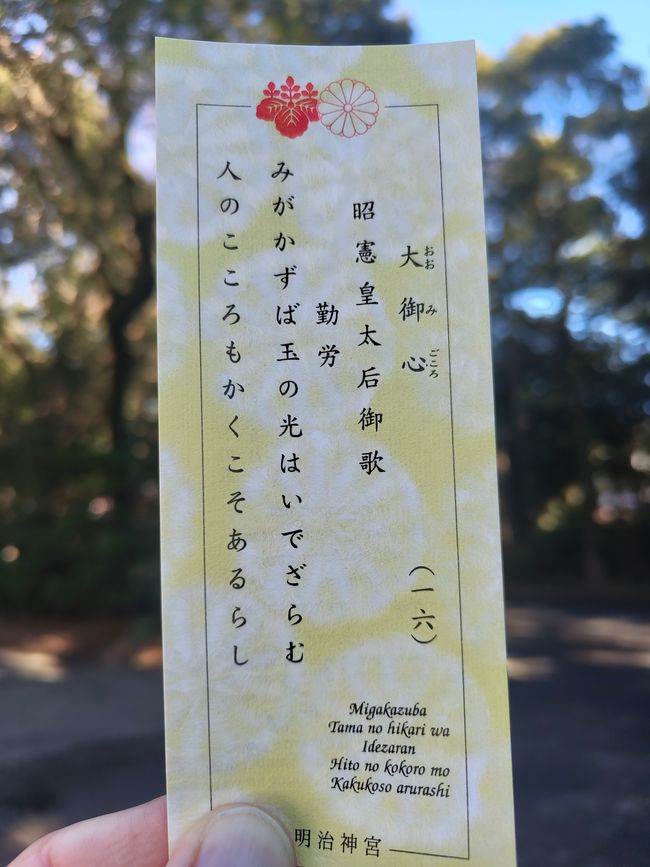 大御心
おおみごころ
(一六)
昭憲皇太后御歌
勤労
みがかずば玉の光はいでざらむ
人のこころもかくこそあるらし
Migakazuba
Tama no hikari wa
Idezaran
Hito no kokoro mo
Kakukoso arurashi
明治神宮